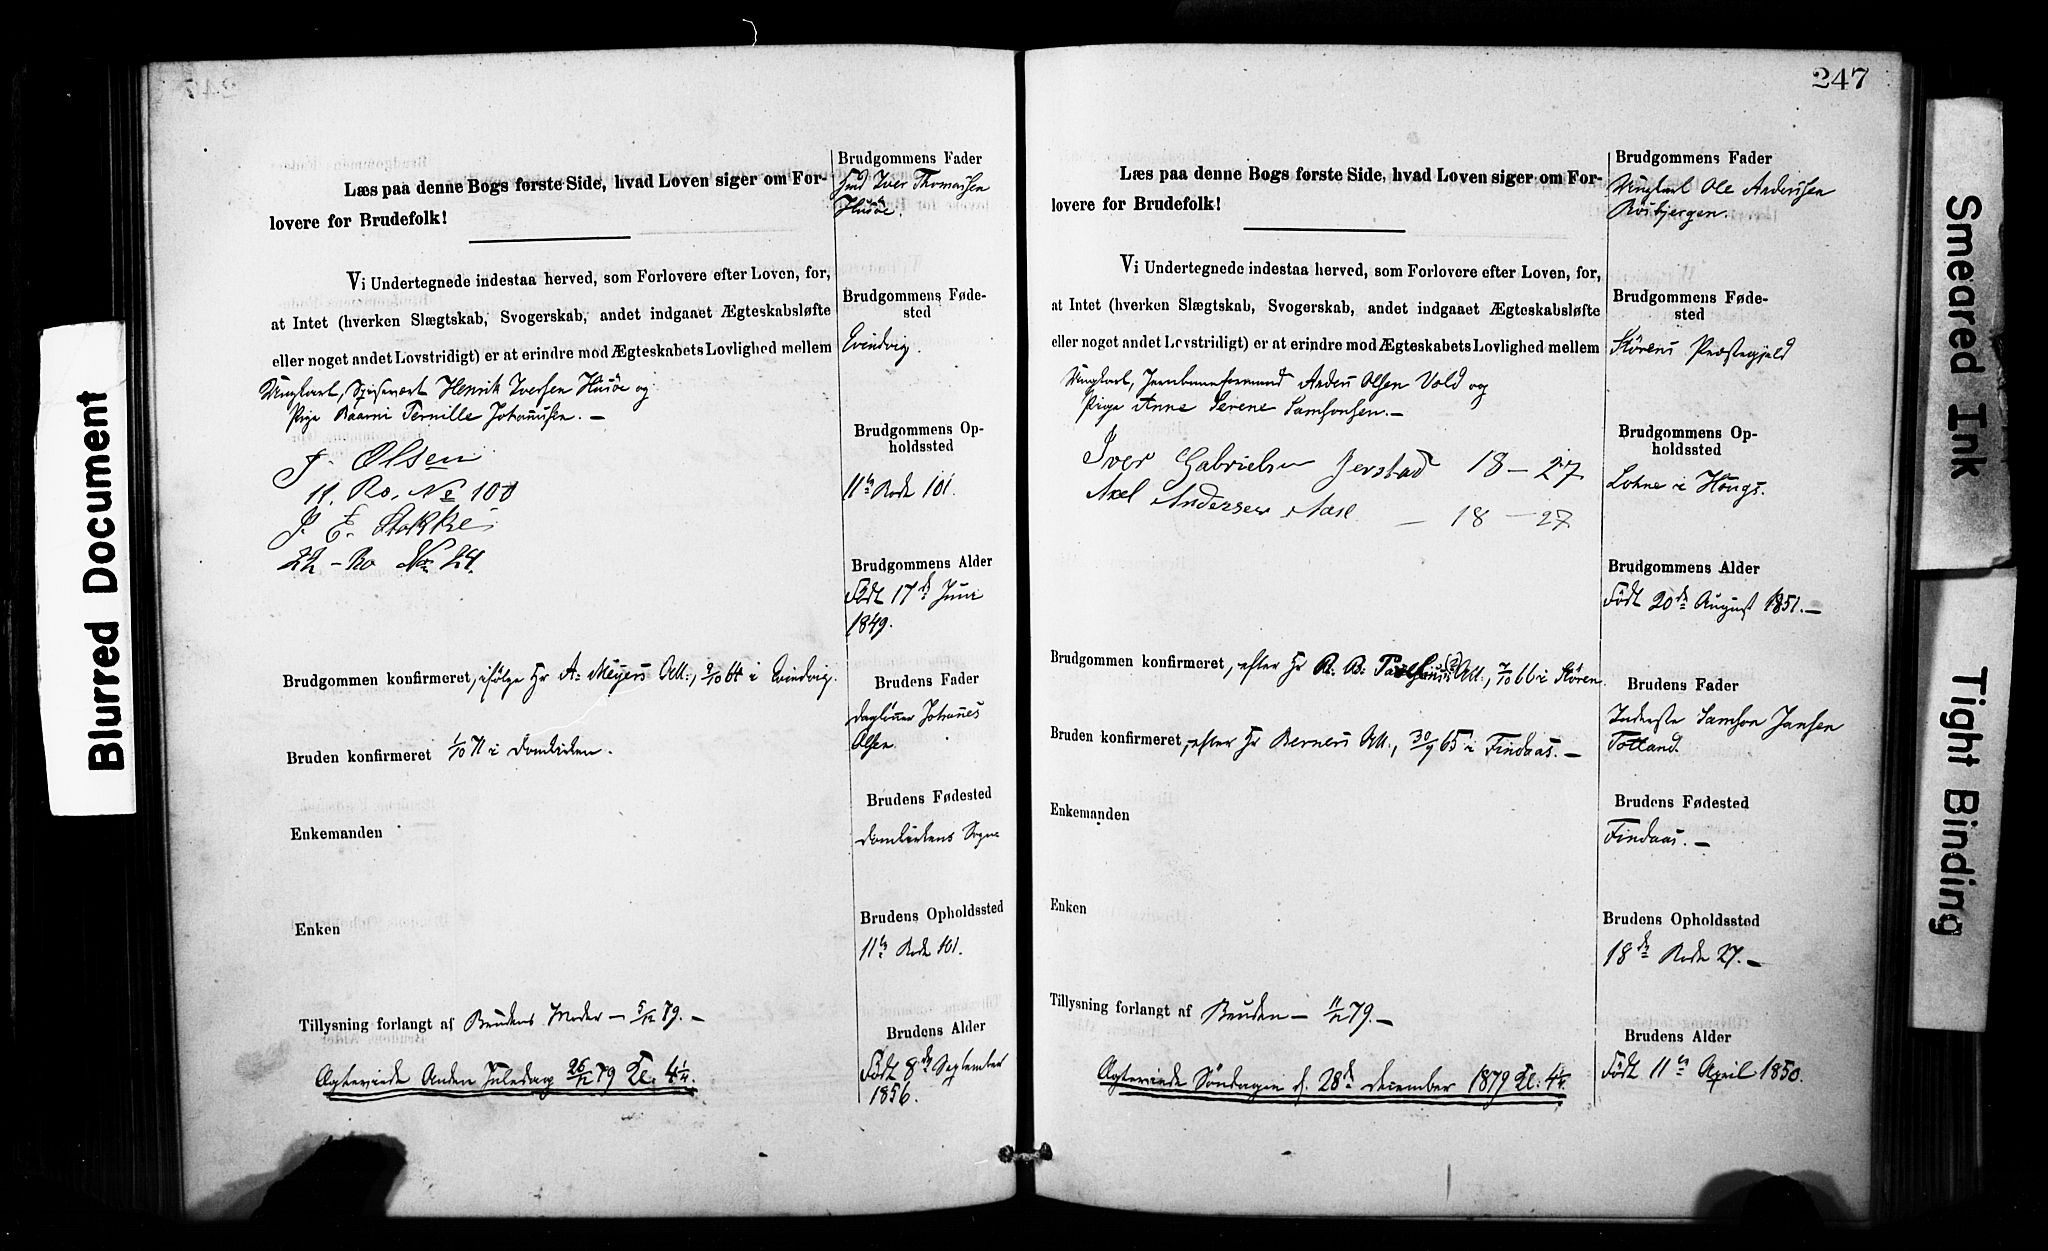 247
Læs paa denne Bogs første Side, hvad Loven siger om For-
lovere for Brudefolk!
Vi Undertegnede indestaa herved, som Forlovere efter Loven, for,
at Intet (hverken Slægtskab, Svogerskab, andet indgaaet Ægteskabsløfte
eller noget andet Lovstridigt) er at erindre mod Ægteskabets Lovlighed mellem
Ungkarl, Henrik Iversen Husöe og
Pige Pernille Johannessen. —
J. Olsen
11. Ro. No 100
J. E. Stokke
22 - Ro No 24.
Brudgommen konfirmeret, ifølge Hr A. Meyers Att., 2/10 64 i Evindvig.
Bruden konfirmeret 1/10 71 i Domkirken.
Enkemanden
Enken
Tillysning forlangt af Brudens Moder — 5/12 79. —
Ægtevviede Anden Juledag 26/12 79 Kl. 4 1/4.
Brudgommens Fader
Iver Thomassen
Husöe.
Brudgommens Føde-
sted
Evindvig.
Brudgommens Op-
holdssted
11te Rode 101.
Brudgommens Alder
Födt 17de Juni
1849.
Brudens Fader
Daglönner Johannes
Olsen
Brudens Fødested
Domkirkens Sogn
Brudens Opholdssted
11te Rode 101.
Brudens Alder
Födt 8de September
1856.
247
Læs paa denne Bogs første Side, hvad Loven siger om For-
lovere for Brudefolk!
Vi Undertegnede indestaa herved, som Forlovere efter Loven, for,
at Intet (hverken Slægtskab, Svogerskab, andet indgaaet Ægteskabsløfte
eller noget andet Lovstridigt) er at erindre mod Ægteskabets Lovlighed mellem
Ungkarl, Jernbaneformand Anders Olsen Vold og
Pige Anne Serene Samsonsen. —
Iver Gabrielsen Jerstad 18 — 27
Axel Andersen Aase — 18 — 27
Brudgommen konfirmeret, efter Hr Att., 7/10 66 i Stören.
Bruden konfirmeret, efter Hr Berners Att., 30/9 65 i Findaas. —
Enkemanden
Enken
Tillysning forlangt af Bruden — 11/12 79. —
Ægteviede Söndagen d. 28de December 1879 Kl. 4 1/4.
Brudgommens Fader
Ungkarl Ole Anderssen
Rösbjergen.
Brudgommens Føde-
sted
Störens Præstegjeld
Brudgommens Op-
holdssted
Lohne i Hougs.
Brudgommens Alder
Födt 20de August 1851. —
Brudens Fader
Inderste Samson Jansen
Totland.
Brudens Fødested
Findaas. —
Brudens Opholdssted
18de Rode 27. —
Brudens Alder
Födt 11te April 1850.
Blurred Document
Smeared Ink
Tight Binding